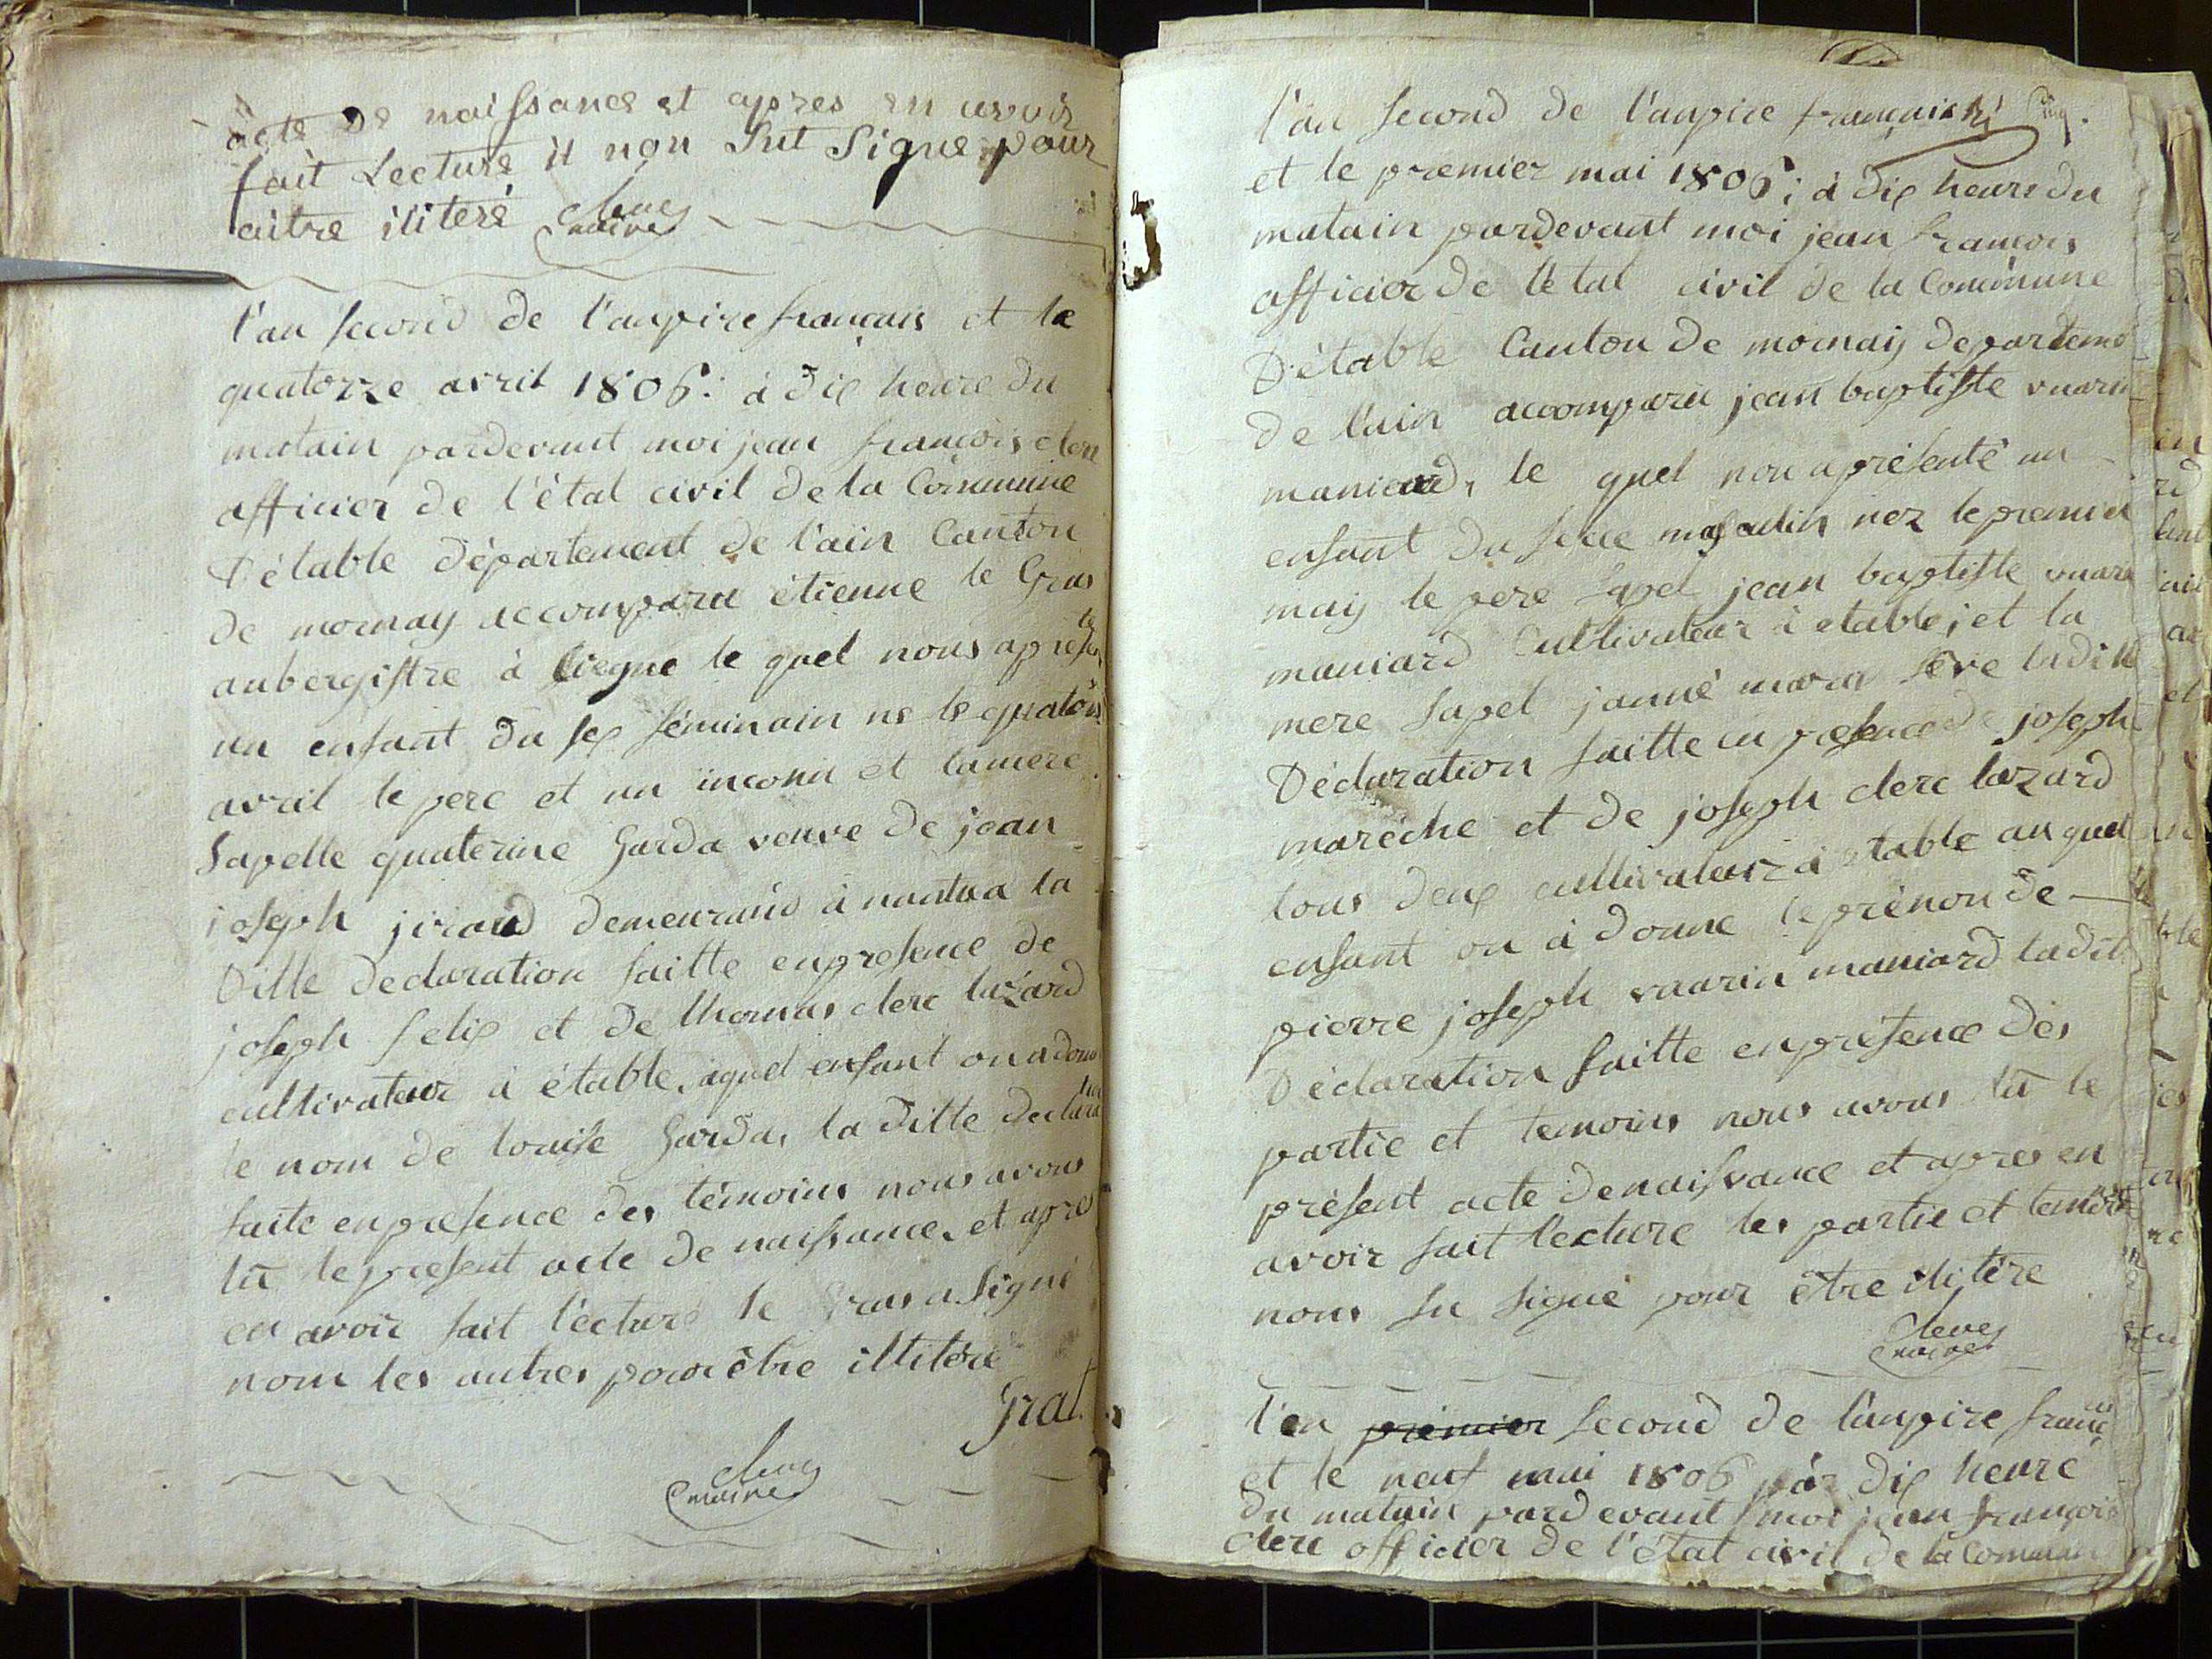 acte de naissance et apres en avoir
fait Lecture il non Sut Signe pour
aitre iliteré clerc
maire
l'an second de l'anpire français et le
quatorze avril 1806: à dix heure du
matain pardevant moi jean françois clerc
afficier de l'état civil de la Commune
D'étable département de l'ain Canton
de mornay accomparu étienne le Gras
aubergistre à le quel nous apresente
un enfant du sex féminain ne le quatorz
avril le pere et un inconu et la mere
sapelle quaterine Garda veuve de jean
joseph jiraud demeurand à nantua la
Ditte declaration faitte en presence de
joseph felix et de thomas clerc lazard
cultivateur à étable, aquel enfant on a donn
le nom de louise Garda, la ditte declaration
faite en presence des témoins nous avons
lu le present acte de naissance, et apres
en avoir fait lecture le Gras a Signé
nom les autres pour être illitéré
Gras
clerc
maire
l'an second de l'anpire français
et le premier mai 1806; à dix heure du
matain pardevant moi jean françois
afficier de l'etat civil de la Commune
D'étable Canton de mornay departeme
de l'ain accomparu jean baptiste vuarin
maniard, le quel nou aprésenté un
enfant du sexe masculin nez le premier
may le pere sapel jean baptiste vuarin
maniard Cultivateur à etable; et la
mere sapel janné seve ladite
Déclaration faitte en presence de joseph
maréche et de joseph clerc lazard
tous deux cultivateurz à etable au quel
enfant on à donne le prénon de
pierre joseph vuarin maniard ladit
Déclaration faitte en présence des
partie et temoins nous avons lu le
présent acte de naissance et apres en
avoir fait lecture les partie et temoins
nons su signé pour être ilitére
clerc
maire
l'en premier second de l'anpire franç
et le neuf mai 1806 par dix heure
du matain pardevant moi jean françois
clerc officier de l'état civil de la Commun